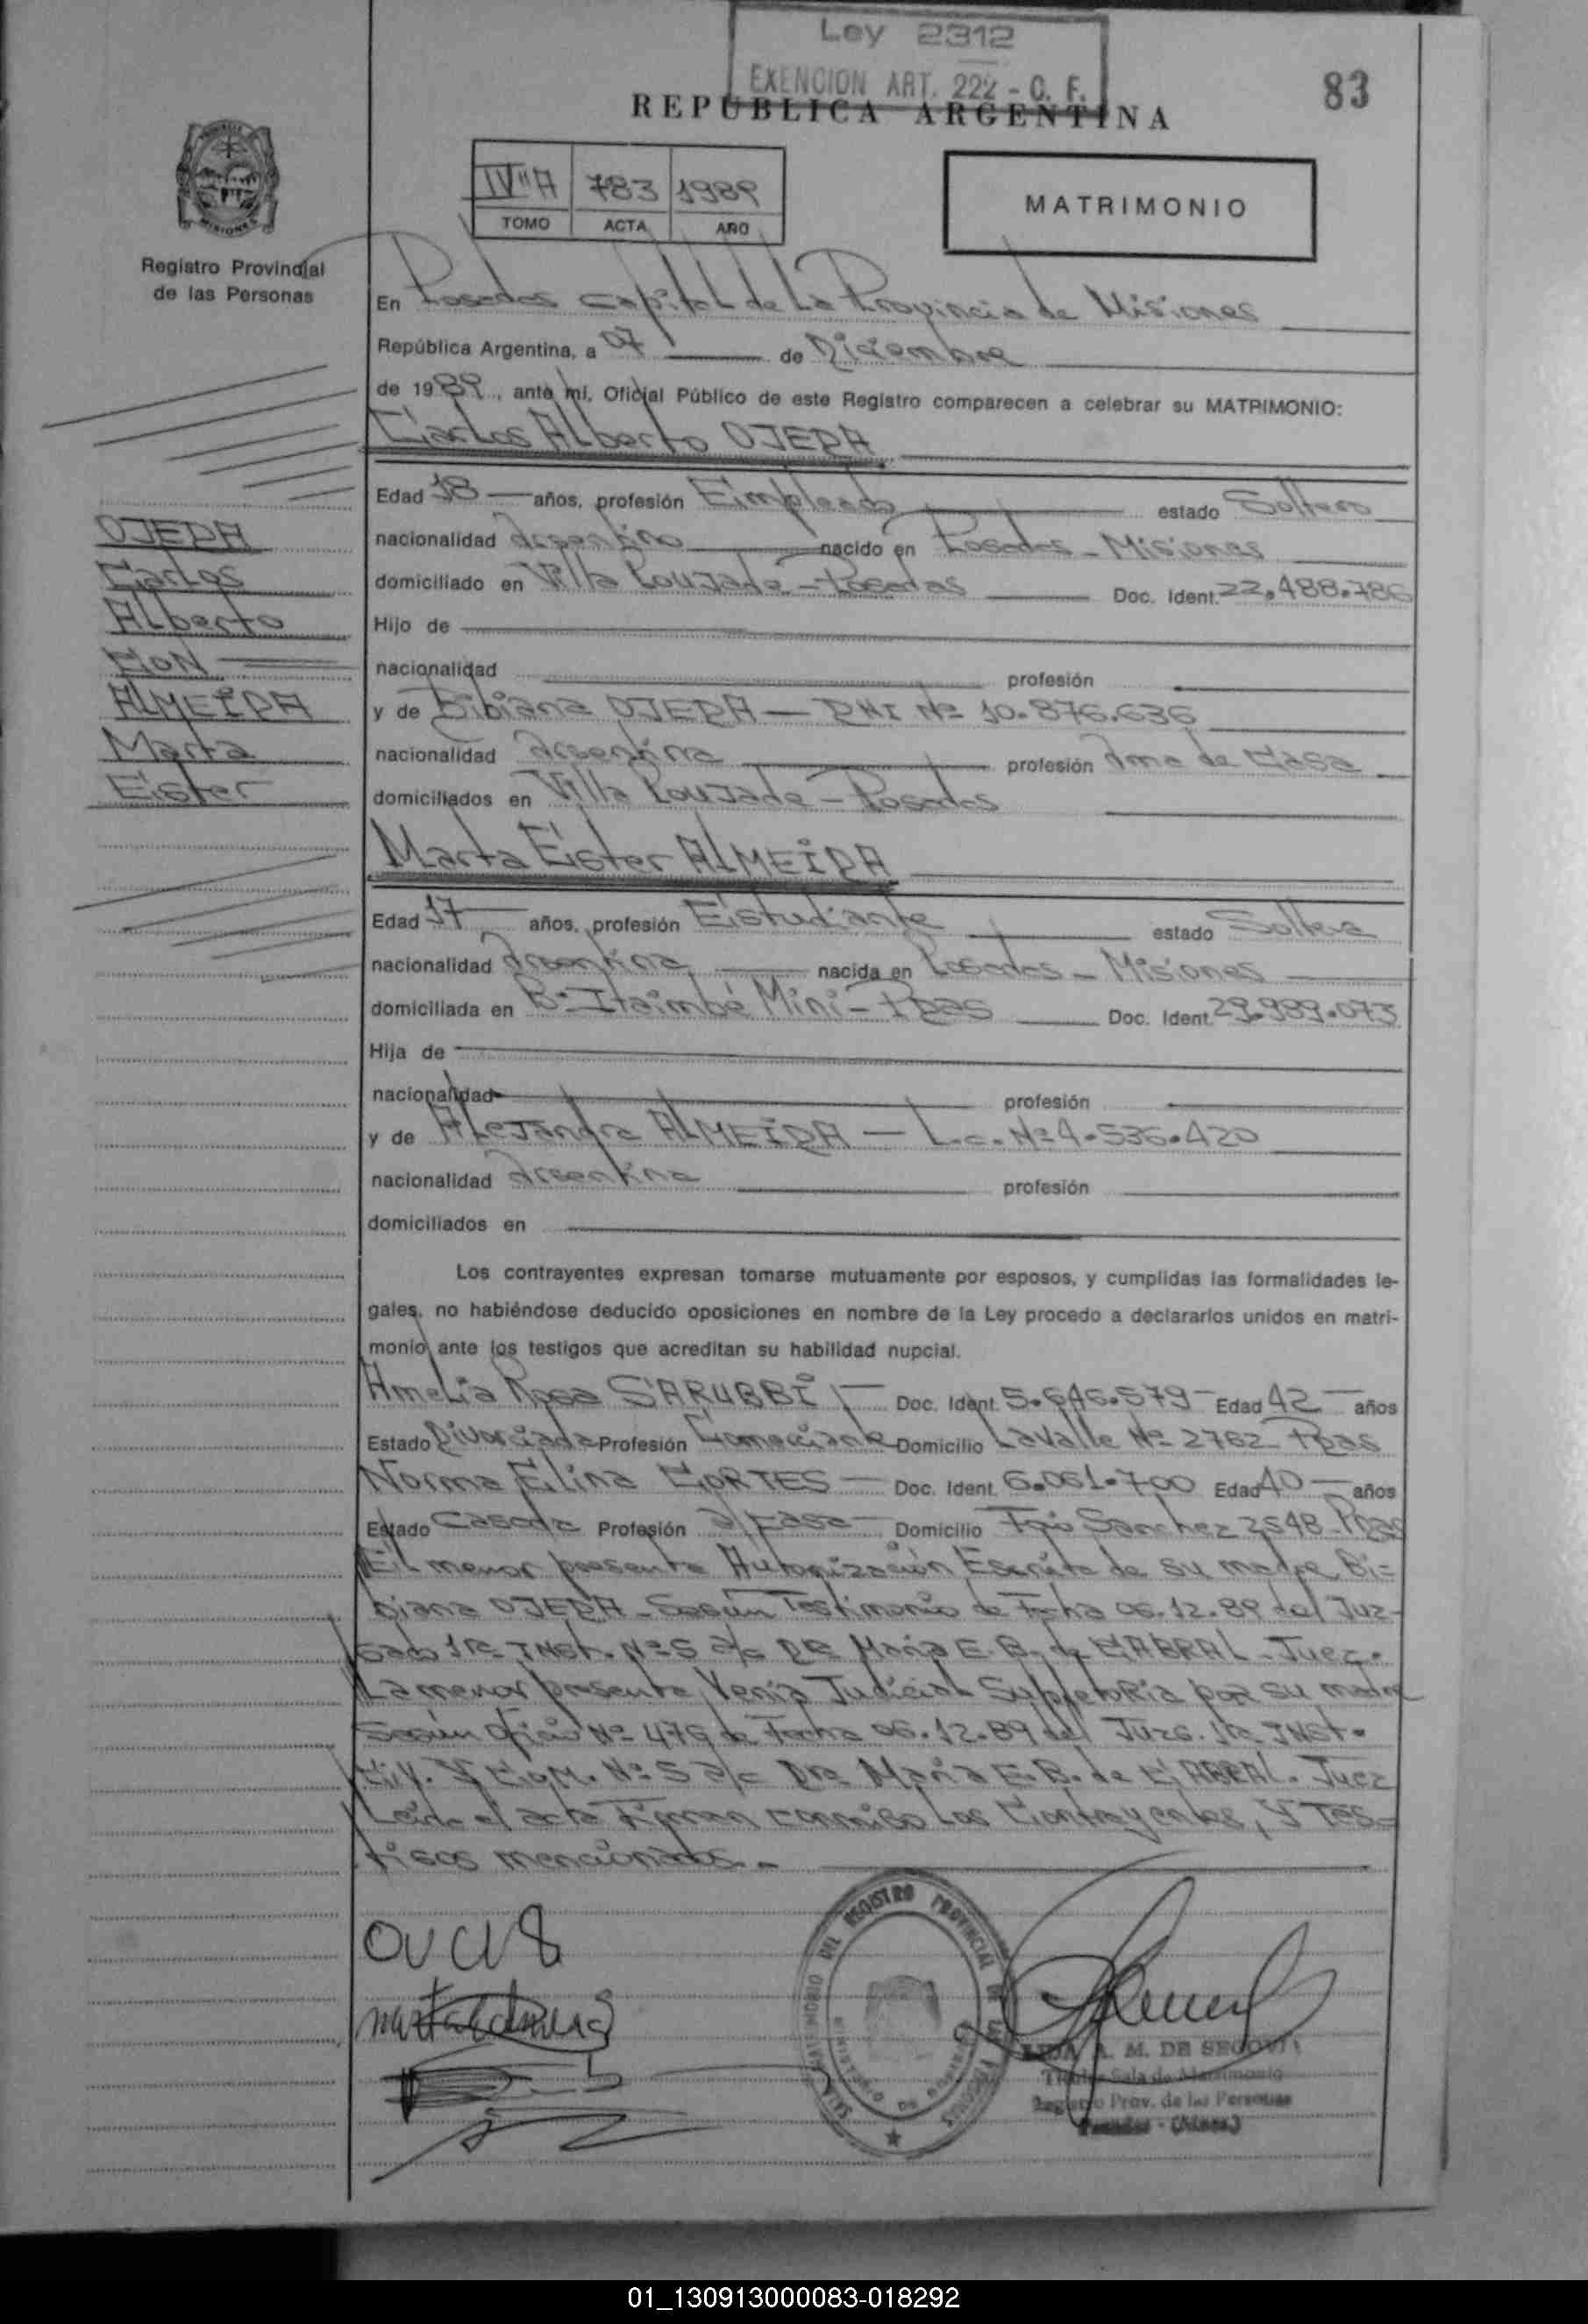 Ley 2312
EXENCION ART. 222 - C. F.
83
REPUBLICA ARGENTINA
IV"A 783 1989
TOMO ACTA AÑO
MATRIMONIO
MISIONES
Registro Provincial
de las Personas
En Posadas Capital de La Provincia de Misiones
República Argentina, a 07 de Diciembre
de 1989, ante mí, Oficial Público de este Registro comparecen a celebrar su MATRIMONIO:
Carlos Alberto OJEDA
Edad 18 años, profesión Empleado estado Soltero
nacionalidad Argentino nacido en Posadas - Misiones
domiciliado en Villa Poujade - Posadas Doc. Ident. 22.488.786
Hijo de
nacionalidad profesión
y de Bibiana OJEDA - DNI Nº 10.876.636
nacionalidad Argentina profesión Ama de Casa
domiciliados en Villa Poujade - Posadas
OJEDA
Carlos
Alberto
CON
ALMEIDA
Marta
Ester
Marta Ester ALMEIDA
Edad 17 años, profesión Estudiante estado Soltera
nacionalidad Argentina nacida en Posadas - Misiones
domiciliada en Bº Itaimbé Mini - Pdas Doc. Ident. 29.989.073
Hija de
nacionalidad profesión
y de Alejandra ALMEIDA - L.c. Nº 4.536.420
nacionalidad Argentina profesión
domiciliados en
Los contrayentes expresan tomarse mutuamente por esposos, y cumplidas las formalidades le-
gales, no habiéndose deducido oposiciones en nombre de la Ley procedo a declararlos unidos en matri-
monio ante los testigos que acreditan su habilidad nupcial.
Amelia Rosa SARUBBI - Doc. Ident. 5.646.579 - Edad 42 - años
Estado Divorciada Profesión Comerciante Domicilio Lavalle Nº 2762 - Pdas
Norma Elina CORTES - Doc. Ident. 6.061.700 Edad 40 - años
Estado Casada Profesión a/casa - Domicilio Fco Sanchez 2548 - Pdas
El menor presenta Autorización Escrita de su madre Bi-
biana OJEDA - Según Testimonio de Fecha 06.12.89 del Juz-
gado 1ra INst. Nº 5 a/c Dra María E. B. de CABRAL - Juez.
La menor presenta Venia Judicial Supletoria por su madre
Según Oficio Nº 476 de Fecha 06.12.89 del Juzg. 1ra INst.
Civ. y Com. Nº 5 a/c Dra María E. B. de CABRAL. Juez
Leída el acta Firman conmigo Los Contrayentes, y Tes-
tigos mencionados.-
DEL REGISTRO PROVINCIAL DE LAS PERSONAS
A. M. DE SEGOVIA
Titular Sala de Matrimonio
Registro Prov. de las Personas
Posadas - (Mnes.)
01_130913000083-018292